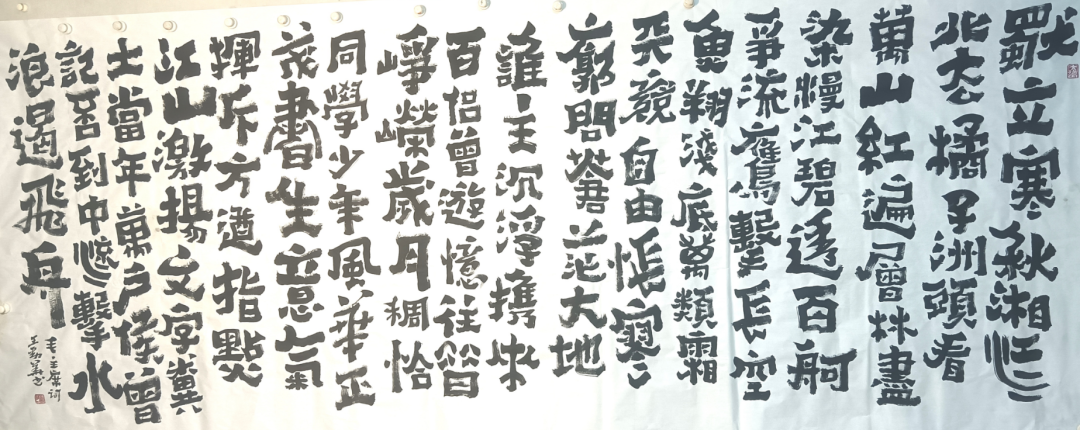 獨立寒秋湘江
北去橘子洲頭看
萬山紅遍層林盡
染縵江碧透百舸
爭流鷹擊長空
魚翔淺底萬類霜
天競自由悵寥
廓問蒼茫大地
誰主沉浮攜來
百侶曾遊憶往昔
崢嶸歲月稠恰
同學少年風華正
茂書生意氣
揮斥方遒指點
江山激揚文字糞
土當年萬戶侯曾
記否到中流擊水
浪遏飛舟
毛主席詞